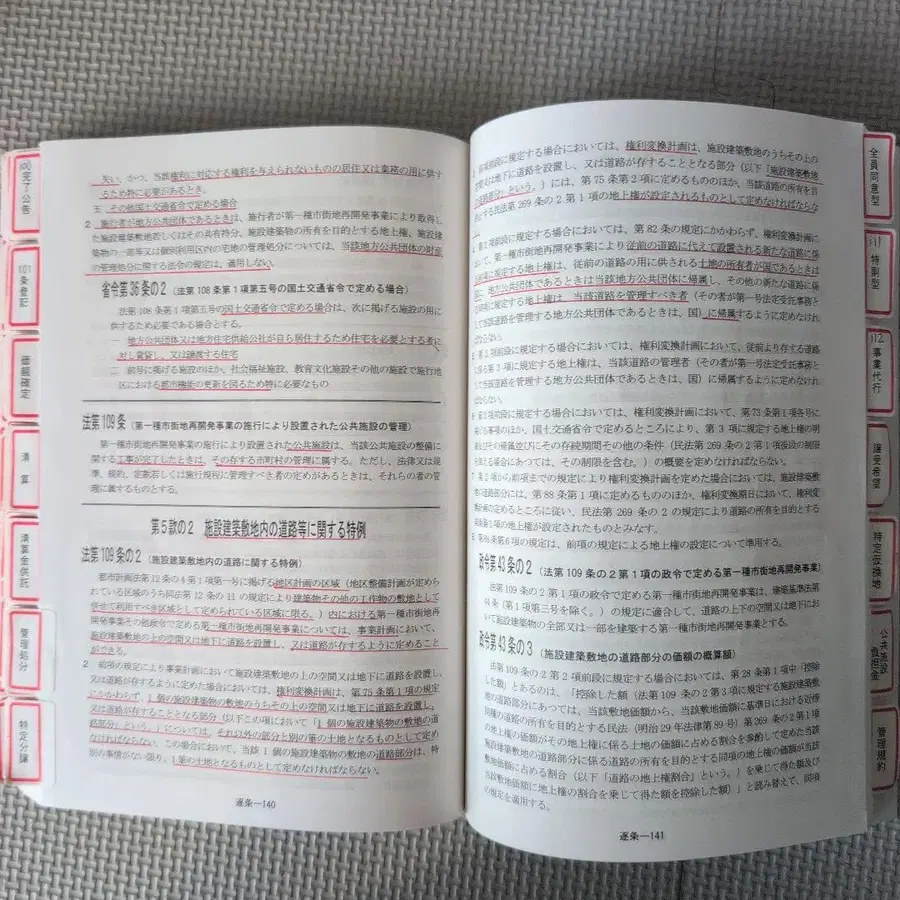 100完了公告
101条登記
価額確定
清算
清算金供託
管理処分
特定分譲
失い、かつ、当該権利に対応する権利を与えられないものの居住又は業務の用に供するため特に必要があるとき。
五 その他国土交通省令で定める場合
2 施行者が地方公共団体であるときは、施行者が第一種市街地再開発事業により取得した施設建築敷地若しくはその共有持分、施設建築物の所有を目的とする地上権、施設建築物の一部等又は個別利用区内の宅地の管理処分については、当該地方公共団体の財産の管理処分に関する法令の規定は、適用しない。
省令第36条の2(法第108条第1項第五号の国土交通省令で定める場合)
法第108条第1項第五号の国土交通省令で定める場合は、次に掲げる施設の用に供するため必要である場合とする。
一 地方公共団体又は地方住宅供給公社が自ら居住するため住宅を必要とする者に対し賃貸し、又は譲渡する住宅
二 前号に掲げる施設のほか、社会福祉施設、教育文化施設その他の施設で施行地区における都市機能の更新を図るため特に必要なもの
法第109条(第一種市街地再開発事業の施行により設置された公共施設の管理)
第一種市街地再開発事業の施行により設置された公共施設は、当該公共施設の整備に関する工事が完了したときは、その存する市町村の管理に属する。ただし、法律又は規準、規約、定款若しくは施行規程に管理すべき者の定めがあるときは、それらの者の管理に属するものとする。
第5款の2 施設建築敷地内の道路等に関する特例
法第109条の2(施設建築敷地内の道路に関する特例)
都市計画法第12条の4第1項第一号に掲げる地区計画の区域(地区整備計画が定められている区域のうち同法第12条の11の規定により建築物その他の工作物の敷地として併せて利用すべき区域として定められている区域に限る。)内における第一種市街地再開発事業その他政令で定める第一種市街地再開発事業については、事業計画において、施設建築敷地の上の空間又は地下に道路を設置し、又は道路が存するように定めることができる。
2 前項の規定により事業計画において施設建築敷地の上の空間又は地下に道路を設置し、又は道路が存するように定めた場合においては、権利変換計画は、第75条第1項の規定にかかわらず、1個の施設建築物の敷地のうちその上の空間又は地下に道路を設置し、又は道路が存することとなる部分(以下この項において「1個の施設建築物の敷地の道路部分」という。)については、それ以外の部分と別の筆の土地となるものとして定めなければならない。この場合において、当該1個の施設建築物の敷地の道路部分は、特別の事情がない限り、1筆の土地となるものとして定めなければならない。
逐条—140
前項前段に規定する場合においては、権利変換計画は、施設建築敷地のうちその上の空間又は地下に道路を設置し、又は道路が存することとなる部分(以下「施設建築敷地の道路部分」という。)には、第75条第2項に定めるもののほか、当該道路の所有を目的とする民法第269条の2第1項の地上権が設定されるものとして定めなければならない。
第2項前段に規定する場合においては、第82条の規定にかかわらず、権利変換計画において、第一種市街地再開発事業により従前の道路に代えて設置される新たな道路に係る前項に規定する地上権は、従前の道路の用に供される土地の所有者が国であるときは国に、地方公共団体であるときは当該地方公共団体に帰属し、その他の新たな道路に係る前項に規定する地上権は、当該道路を管理すべき者(その者が第一号法定受託事務として当該道路を管理する地方公共団体であるときは、国)に帰属するように定めなければならない。
第2項前段に規定する場合においては、権利変換計画において、従前より存する道路に係る第3項に規定する地上権は、当該道路の管理者(その者が第一号法定受託事務として当該道路を管理する地方公共団体であるときは、国)に帰属するように定めなければならない。
第2項前段に規定する場合においては、権利変換計画において、第73条第1項各号に掲げる事項のほか、国土交通省令で定めるところにより、第3項に規定する地上権の明細及びその帰属並びにその存続期間その他の条件(民法第269条の2第1項後段の制限を加える場合にあつては、その制限を含む。)の概要を定めなければならない。
第2項から前項までの規定により権利変換計画を定めた場合においては、施設建築敷地の道路部分には、第88条第1項に定めるもののほか、権利変換期日において、権利変換計画の定めるところに従い、民法第269条の2の規定により道路の所有を目的とする同条第1項の地上権が設定されたものとみなす。
8 第88条第6項の規定は、前項の規定による地上権の設定について準用する。
政令第43条の2(法第109条の2第1項の政令で定める第一種市街地再開発事業)
法第109条の2第1項の政令で定める第一種市街地再開発事業は、建築基準法第44条(第1項第三号を除く。)の規定に適合して、道路の上の空間又は地下において施設建築物の全部又は一部を建築する第一種市街地再開発事業とする。
政令第43条の3(施設建築敷地の道路部分の価額の概算額)
法第109条の2第2項前段に規定する場合においては、第28条第1項中「控除した額」とあるのは、「控除した額(法第109条の2第3項に規定する施設建築敷地の道路部分にあつては、当該敷地価額から、当該敷地価額に基準日における近傍同種の道路の所有を目的とする民法(明治29年法律第89号)第269条の2第1項の地上権の価額がその地上権に係る土地の価額に占める割合を参酌して定めた当該施設建築敷地の道路部分に係る道路の所有を目的とする同項の地上権の価額が当該敷地価額に占める割合(以下「道路の地上権割合」という。)を乗じて得た額及び当該敷地価額に当該地上権の割合を乗じて得た額を控除した額)」と読み替えて、同項の規定を適用する。
逐条—141
全員同意型
111特則型
112事業代行
譲受希望
特定仮換地
公共施設負担金
管理規約